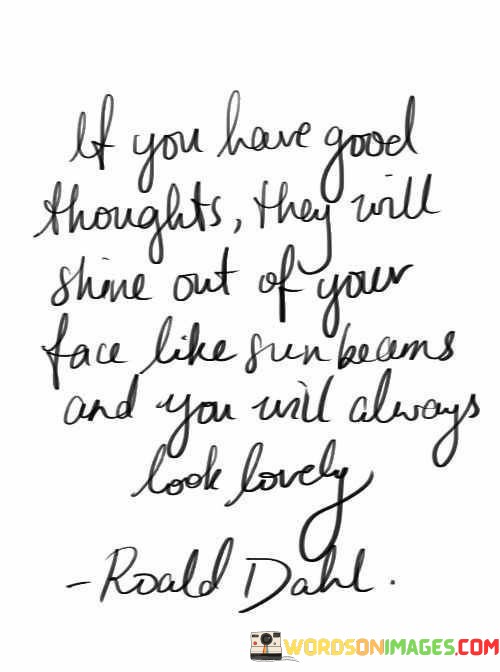 If you have good
thoughts, they will
shine out of your
face like sunbeams
and you will always
look lovely
- Roald Dahl.
WORDSONIMAGES.COM